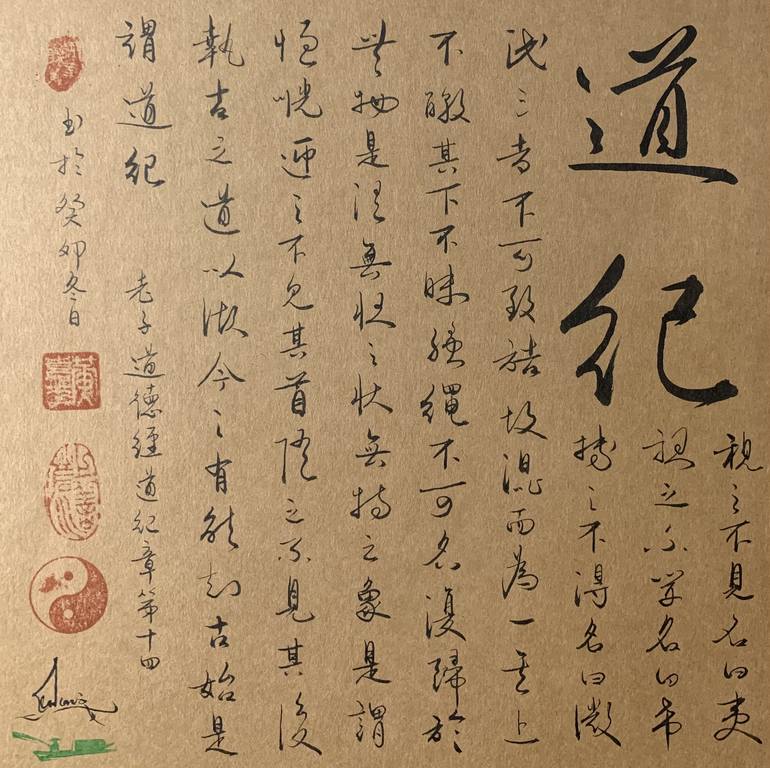 道紀
視之不見名曰夷
聽之不聞名曰希
搏之不得名曰微
此三者不可致詰故混而為一其上
不皦其下不昧繩繩不可名復歸於
無物是謂無狀之狀無物之象是謂
惚恍迎之不見其首隨之不見其後
執古之道以御今之有能知古始是
謂道紀
老子道德經道紀章第十四
書於癸卯冬日